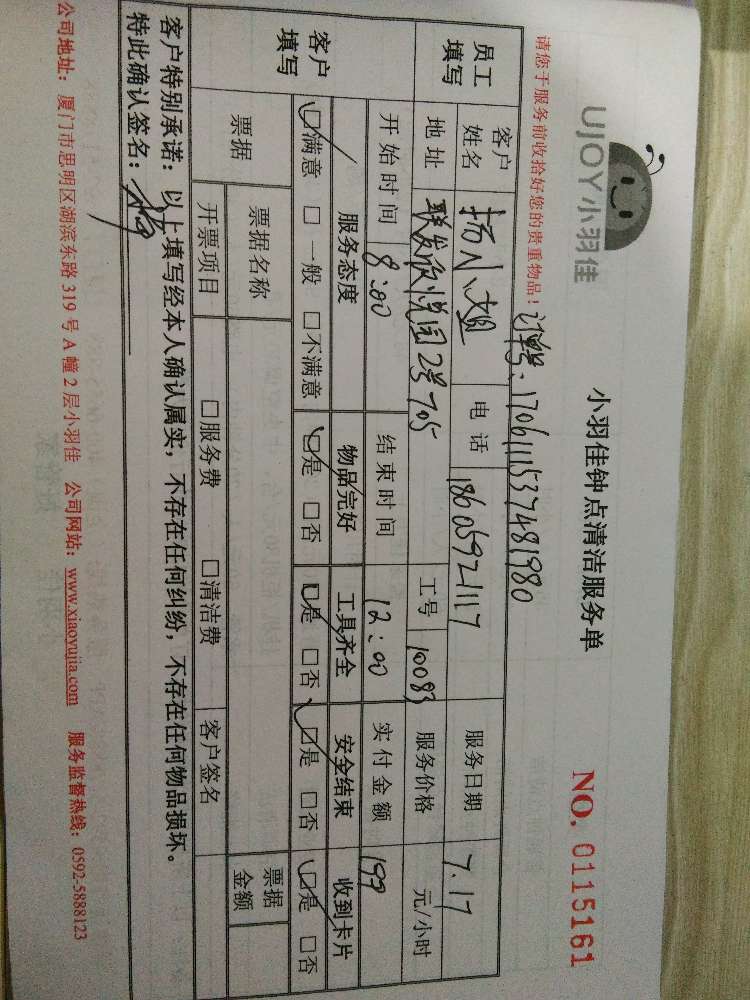 UJOY小羽佳
小羽佳钟点清洁服务单
NO. 0115161
请您于服务前收拾好您的贵重物品! 订单号:1706111537481980
员工填写 客户姓名 杨小姐 电话 18605921117 服务日期 7.17
地址 联发欣悦园2号705 工号 10083 服务价格 元/小时
开始时间 8:00 结束时间 12:00 实付金额 199
客户填写 服务态度 物品完好 工具齐全 安全结束 收到卡片
☑满意 □一般 □不满意 ☑是 □否 ☑是 □否 ☑是 □否 ☑是 □否
票据 票据名称 票据金额
开票项目 □服务费 □清洁费 客户签名
客户特别承诺:以上填写经本人确认属实,不存在任何纠纷,不存在任何物品损坏。
特此确认签名:
公司地址:厦门市思明区湖滨东路 319 号 A 幢 2 层小羽佳 公司网站:www.xiaoyujia.com 服务监督热线:0592-5888123